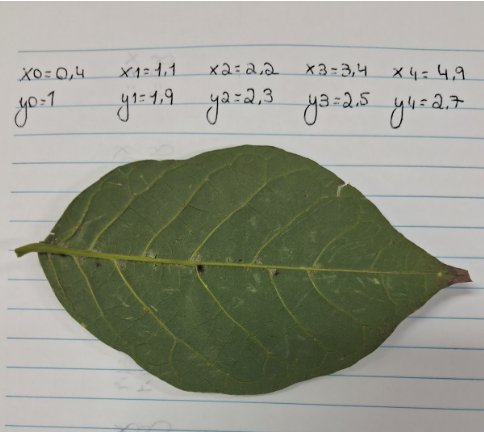 x0=0,4 x1=1,1 x2=2,2 x3=3,4 x4=4,9
y0=1 y1=1,9 y2=2,3 y3=2,5 y4=2,7